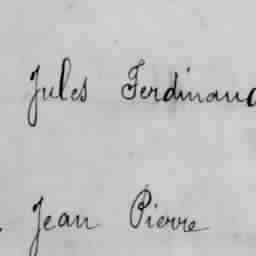 Jules Ferdinand
Jean Pierre